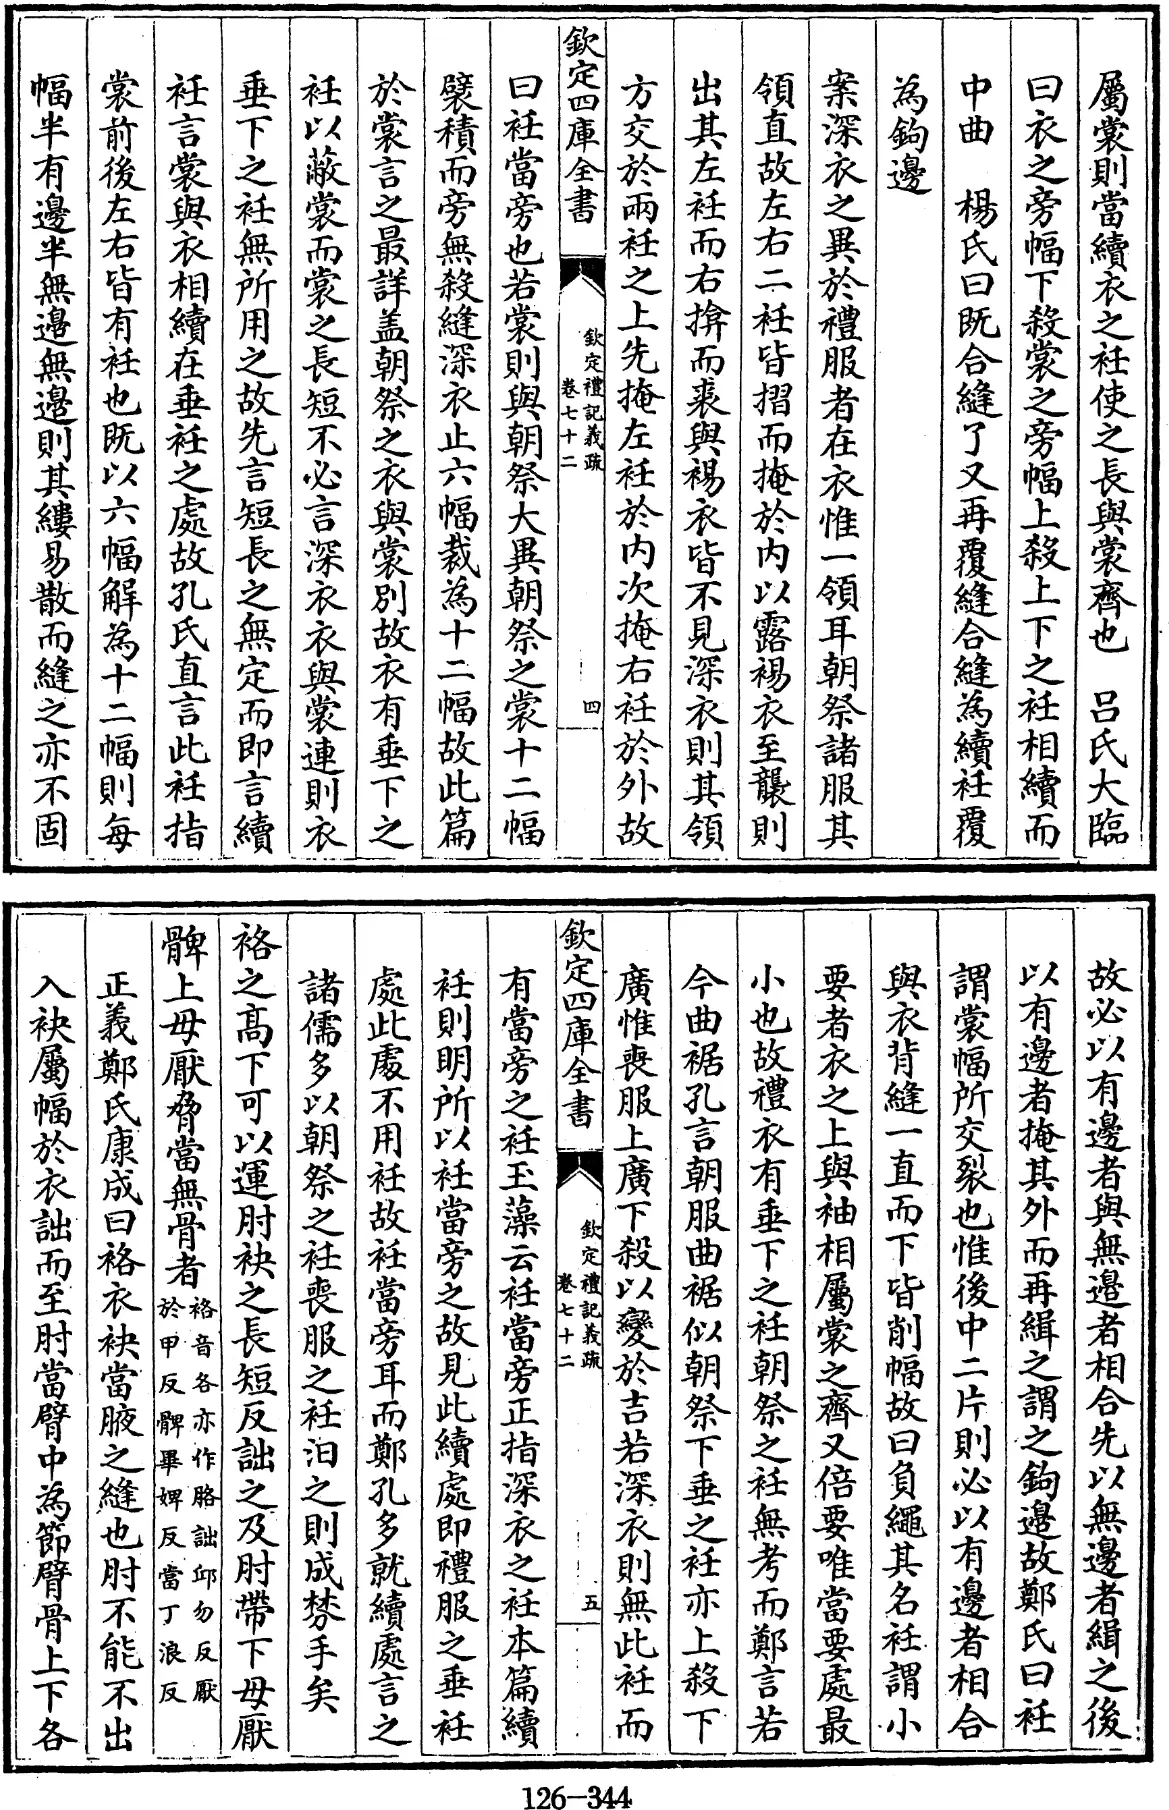 屬裳則當續衣之衽使之長與裳齊也　吕氏大臨
曰衣之旁幅下殺裳之旁幅上殺上下之衽相續而
中曲　楊氏曰既合縫了又再覆縫合縫為續衽覆
為鉤邊
案深衣之異於禮服者在衣惟一領耳朝祭諸服其
領直故左右二衽皆摺而掩於内以露裼衣至襲則
出其左衽而右揜而裘與裼衣皆不見深衣則其領
方交於兩衽之上先掩左衽於内次掩右衽於外故
欽定四庫全書
欽定禮記義疏
卷七十二
四
曰衽當旁也若裳則與朝祭大異朝祭之裳十二幅
襞積而旁無殺縫深衣止六幅裁為十二幅故此篇
於裳言之最詳盖朝祭之衣與裳别故衣有垂下之
衽以蔽裳而裳之長短不必言深衣衣與裳連則衣
垂下之衽無所用之故先言短長之無定而即言續
衽言裳與衣相續在垂衽之處故孔氏直言此衽指
裳前後左右皆有衽也既以六幅解為十二幅則每
幅半有邊半無邊無邊則其縷易散而縫之亦不固
故必以有邊者與無邊者相合先以無邊者緝之後
以有邊者掩其外而再緝之謂之鉤邊故鄭氏曰衽
謂裳幅所交裂也惟後中二片則必以有邊者相合
與衣背縫一直而下皆削幅故曰負繩其名衽謂小
要者衣之上與袖相屬裳之齊又倍要唯當要處最
小也故禮衣有垂下之衽朝祭之衽無考而鄭言若
今曲裾孔言朝服曲裾似朝祭下垂之衽亦上殺下
廣惟喪服上廣下殺以變於吉若深衣則無此衽而
欽定四庫全書
欽定禮記義疏
卷七十二
五
有當旁之衽玉藻云衽當旁正指深衣之衽本篇續
衽則明所以衽當旁之故見此續處即禮服之垂衽
處此處不用衽故衽當旁耳而鄭孔多就續處言之
諸儒多以朝祭之衽喪服之衽汨之則成棼手矣
袼之高下可以運肘袂之長短反詘之及肘帶下毋厭
髀上毋厭脅當無骨者袼音各亦作胳詘邱勿反厭於甲反髀畢婢反當丁浪反
正義鄭氏康成曰袼衣袂當腋之縫也肘不能不出
入袂屬幅於衣詘而至肘當臂中為節臂骨上下各
126-344